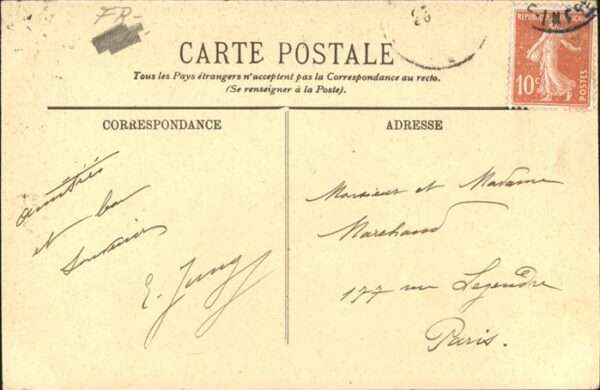 FR-
CARTE POSTALE
Tous les Pays étrangers n'acceptent pas la Correspondance au recto.
(Se renseigner à la Poste).
REPUBLIQUE FRANÇAISE
10c
POSTES
CORRESPONDANCE
ADRESSE
amitiés
et bon
souvenir
E. Jung
Monsieur et Madame
Marchand
177 rue Legendre
Paris.